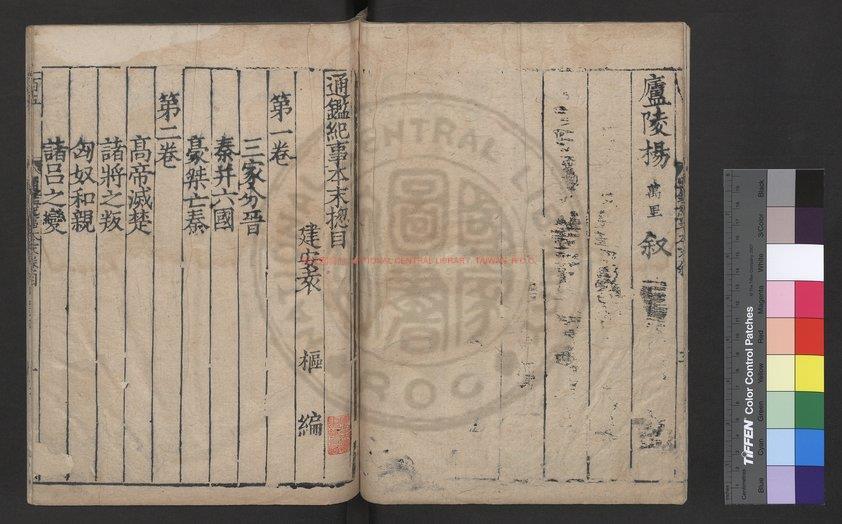 廬陵楊萬里叙
通鑑紀事本末揔目
建安袁樞編
第一卷
三家分晉
秦并六國
豪桀亡秦
第二卷
高帝滅楚
諸將之叛
匈奴和親
諸呂之變
NATIONAL CENTRAL LIBRARY, TAIWAN, R.O.C.
TIFFEN Color Control Patches
Blue
Cyan
Green
Yellow
Red
Magenta
White
3/Color
Black